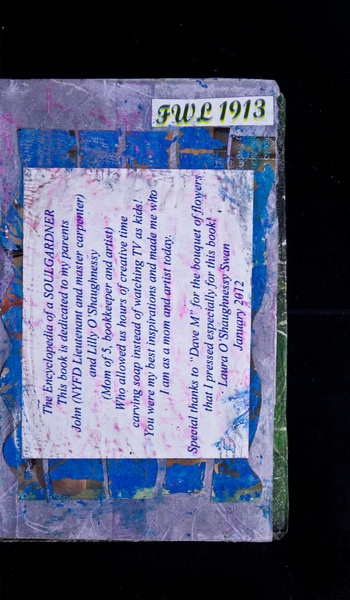 FWL 1913
The Encyclopedia of a SOULGARDNER
This book is dedicated to my parents
John (NYFD Lieutenant and master carpenter)
and Lilly O'Shaughnessy
(Mom of 5, bookkeeper and artist)
Who allowed us hours of creative time
carving soap instead of watching TV as kids!
You were my best inspirations and made me who
I am as a mom and artist today.
Special thanks to "Dave M" for the bouquet of flowers
that I pressed especially for this book!
Laura O'Shaughnessy Swan
January 2012